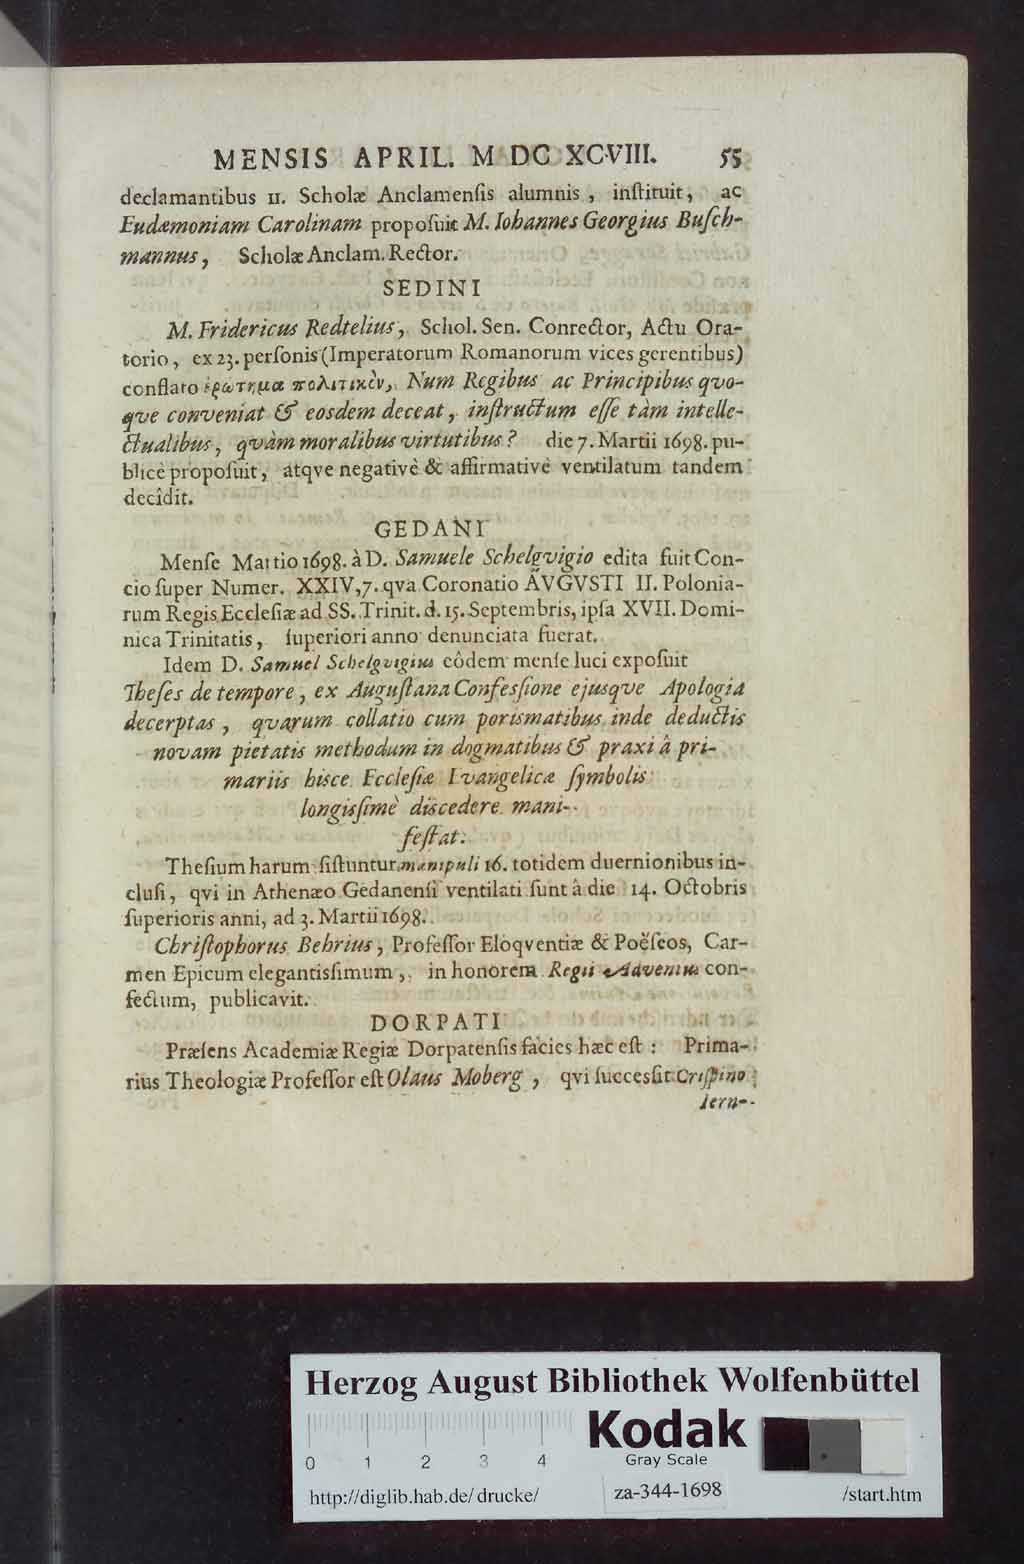 MENSIS APRIL. M DC XCVIII. 55
declamantibus 11. Scholæ Anclamenſis alumnis, inſtituit, ac
Eudæmoniam Carolinam propoſuit M. Iohannes Georgius Buſch-
mannus, Scholæ Anclam. Rector.
SEDINI
M. Fridericus Redtelius, Schol. Sen. Conrector, Actu Ora-
torio, ex 23. perſonis (Imperatorum Romanorum vices gerentibus)
conflato ἐρώτημα πολιτικὸν, Num Regibus ac Principibus qvo-
qve conveniat & eosdem deceat, inſtructum eſſe tàm intelle-
ctualibus, qvàm moralibus virtutibus? die 7. Martii 1698. pu-
blicè propoſuit, atqve negativè & affirmativè ventilatum tandem
decîdit.
GEDANI
Menſe Martio 1698. à D. Samuele Schelgvigio edita fuit Con-
cio ſuper Numer. XXIV,7. qva Coronatio AVGVSTI II. Polonia-
rum Regis Eccleſiæ ad SS. Trinit. d. 15. Septembris, ipſa XVII. Domi-
nica Trinitatis, ſuperiori anno denunciata fuerat.
Idem D. Samuel Schelgvigius eôdem menſe luci expoſuit
Theſes de tempore, ex Auguſtana Confeſſione ejusqve Apologia
decerptas, qvarum collatio cum porismatibus inde deductis
novam pietatis methodum in dogmatibus & praxi â pri-
mariis hisce Eccleſiæ Evangelicæ ſymbolis
longisſimè discedere mani-
feſtat.
Theſium harum ſiſtuntur manipuli 16. totidem duernionibus in-
cluſi, qvi in Athenæo Gedanenſi ventilati ſunt â die 14. Octobris
ſuperioris anni, ad 3. Martii 1698.
Chriſtophorus Behrius, Profeſſor Eloqventiæ & Poëſeos, Car-
men Epicum elegantisſimum, in honorem Regii Adventus con-
fectum, publicavit.
DORPATI
Præſens Academiæ Regiæ Dorpatenſis facies hæc eſt: Prima-
rius Theologiæ Profeſſor eſt Olaus Moberg, qvi ſuccesſit Criſpino
Iern-
Herzog August Bibliothek Wolfenbüttel
Kodak
Gray Scale
0 1 2 3 4
http://diglib.hab.de/drucke/ za-344-1698 /start.htm